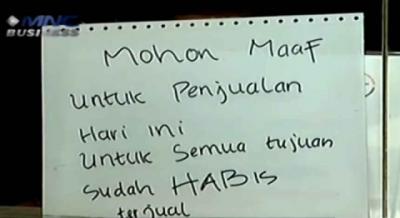 MNC
BUSINESS
Mohon Maaf
Untuk Penjualan
Hari ini
Untuk Semua tujuan
Sudah HABIS
terjual